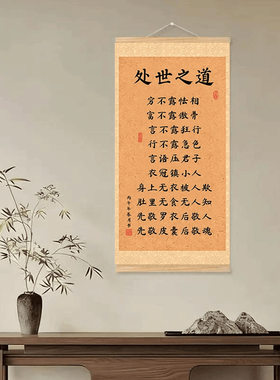 处世之道
穷不露怯相
富不露傲骨
言不露狂行
行不露急色
不语压君子
衣冠镇小人
身上无衣被人欺
肚里无食无人知
先敬罗衣后敬人
先敬皮囊后敬魂